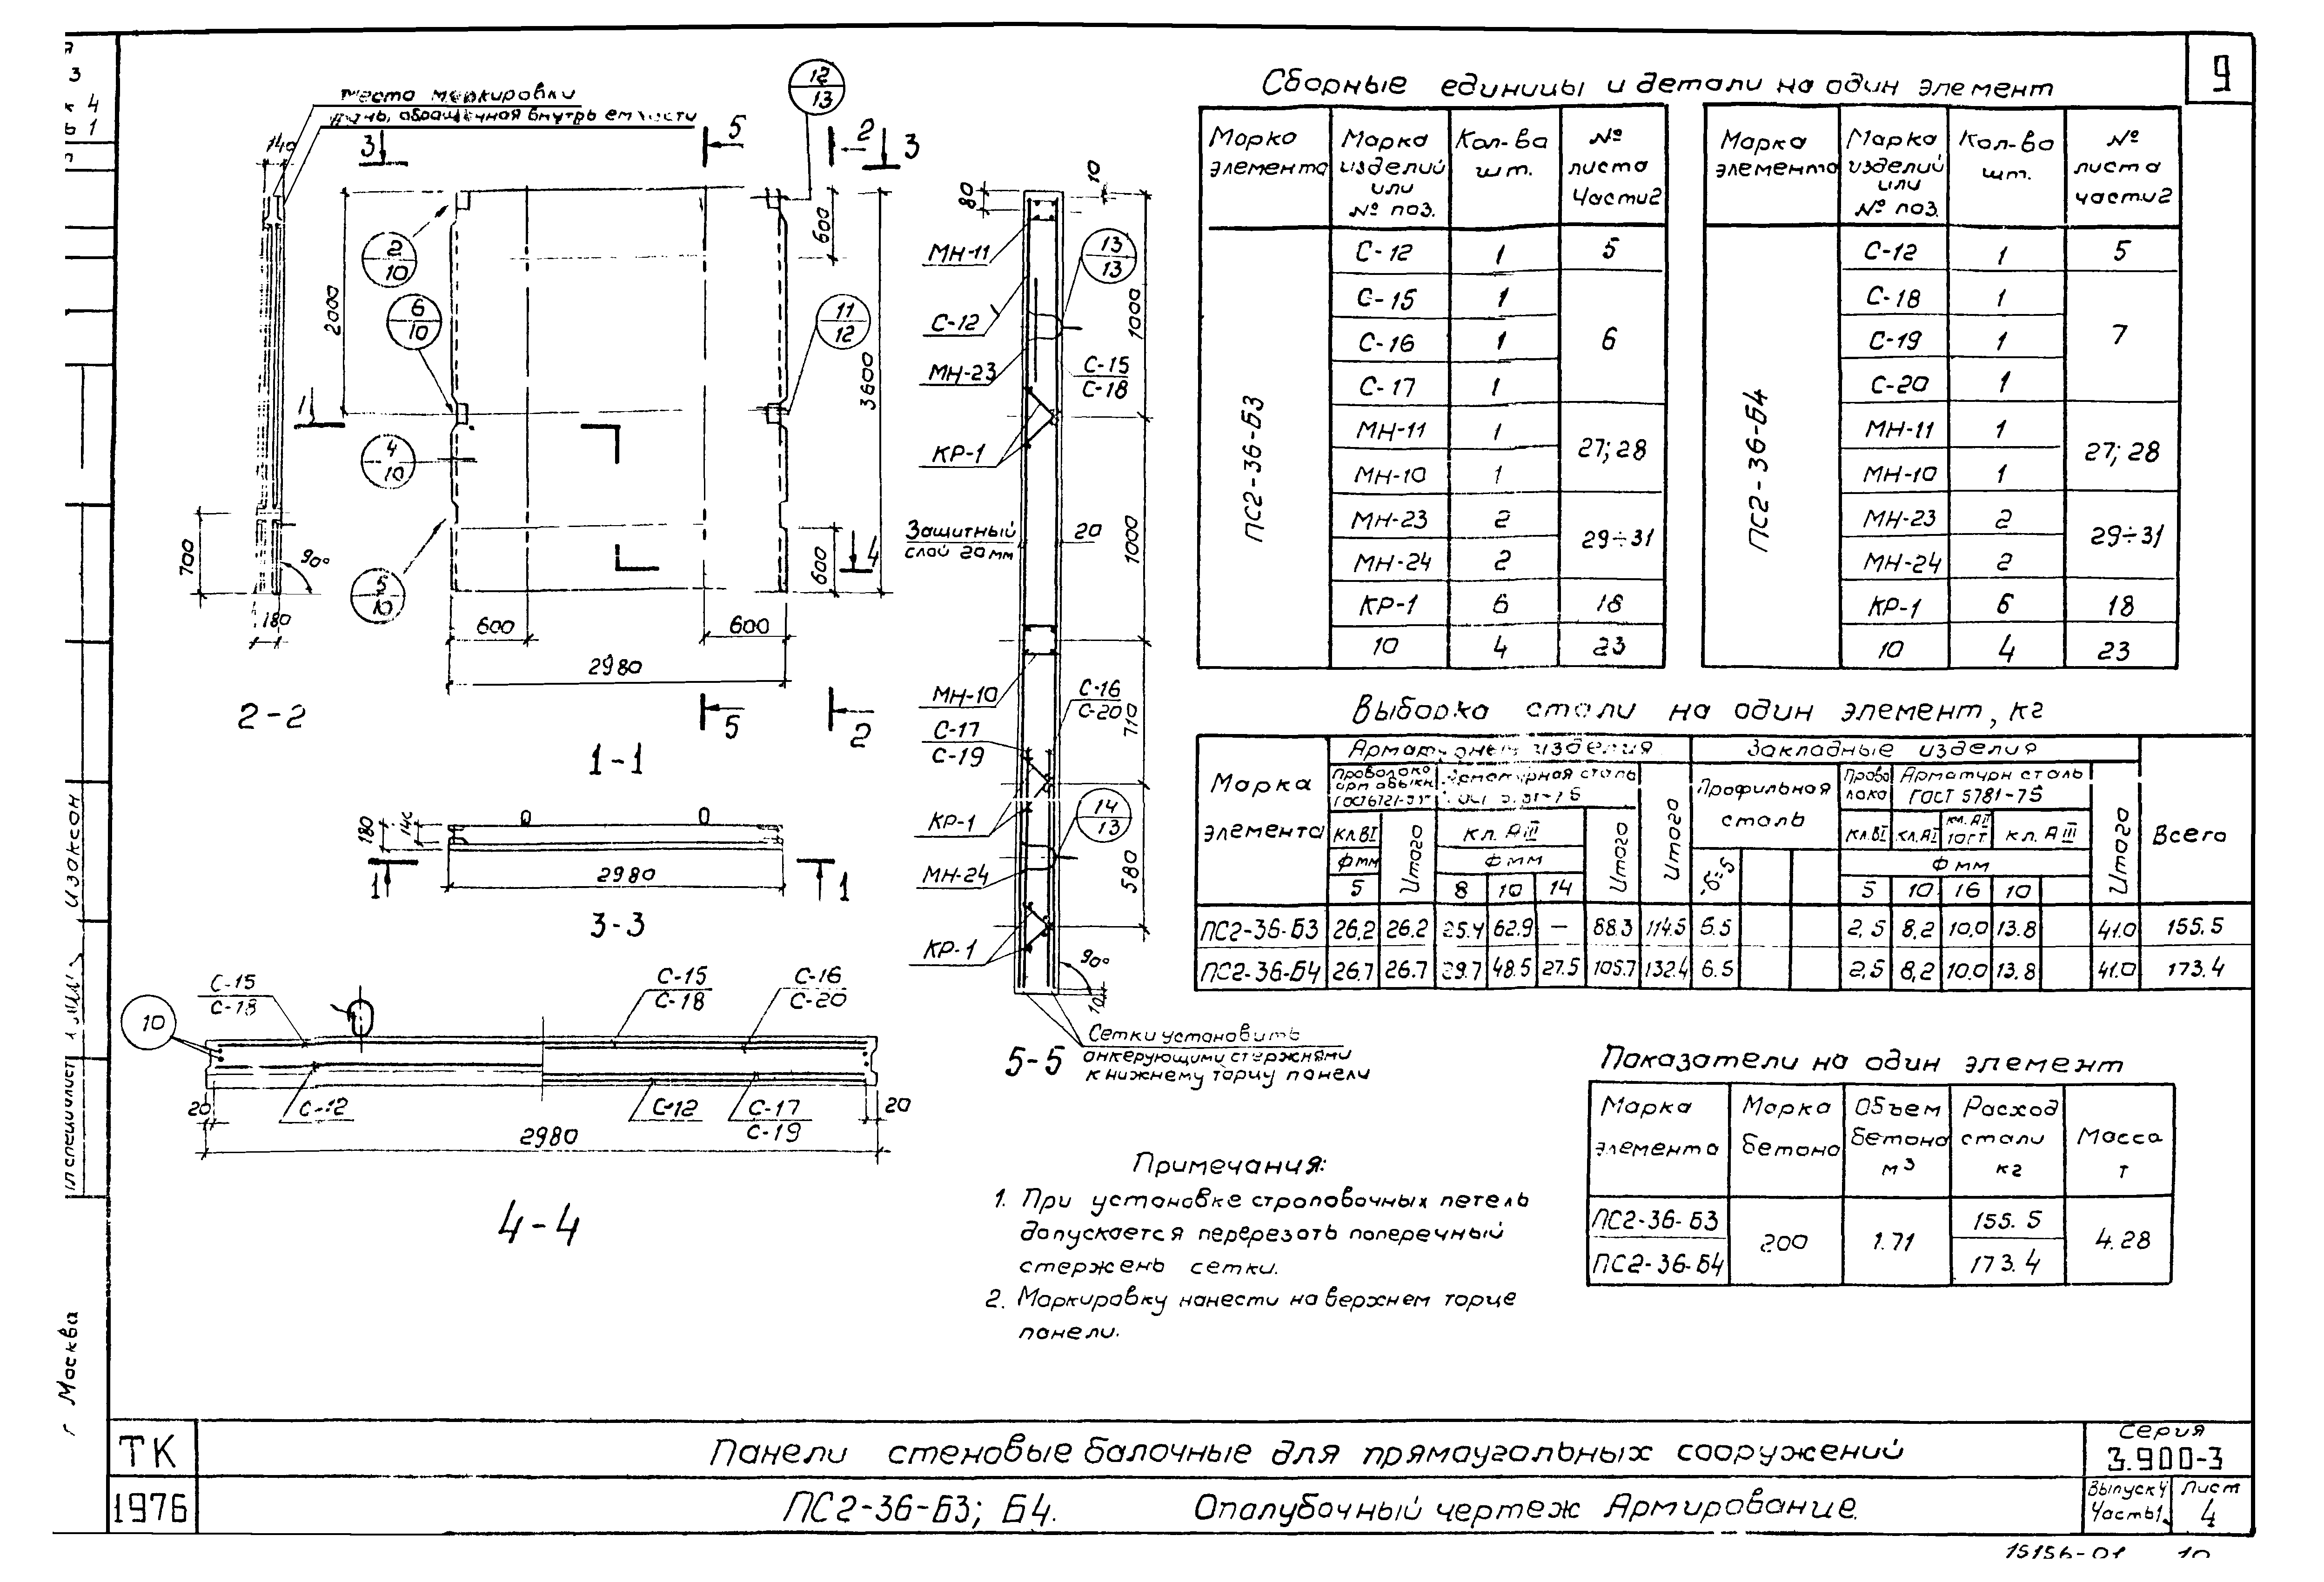 9
место маркировки
грань, обращённая внутрь емкости
140
3
5
2
3
12
13
2000
600
3600
2
10
6
10
11
12
1
4
10
5
10
700
90°
180
600
600
600
4
2980
2-2
5
2
1-1
180
140
2980
1
1
3-3
С-15
С-18
10
С-15
С-18
С-16
С-20
20
С-12
С-12
С-17
С-19
20
2980
4-4
80
10
МН-11
13
13
С-12
МН-23
С-15
С-18
1000
КР-1
Защитный
слой 20 мм
20
1000
МН-10
С-16
С-20
710
С-17
С-19
КР-1
14
13
МН-24
580
КР-1
90°
10
5-5
Сетки установить
анкерующими стержнями
к нижнему торцу панели
Сборные единицы и детали на один элемент
Марка элемента
Марка изделий или № поз.
Кол-во шт.
№ листа части 2
ПС2-36-Б3
С-12 1 5
С-15 1
С-16 1 6
С-17 1
МН-11 1
27; 28
МН-10 1
МН-23 2
29÷31
МН-24 2
КР-1 6 18
10 4 23
Марка элемента
Марка изделий или № поз.
Кол-во шт.
№ листа части 2
ПС2-36-Б4
С-12 1 5
С-18 1
С-19 1 7
С-20 1
МН-11 1
27; 28
МН-10 1
МН-23 2
29÷31
МН-24 2
КР-1 6 18
10 4 23
Выборка стали на один элемент, кг
Марка элемента
Арматурные изделия
Закладные изделия
Всего
Проволока арм. обыкн. ГОСТ 6727-53*
Арматурная сталь ГОСТ 5781-75
Итого
Профильная сталь
Проволока
Арматурн сталь ГОСТ 5781-75
Итого
кл.ВI
Итого
кл. АIII
Итого
кл.ВI
кл.АI
кл. АII 10ГТ
кл. АIII
Ф мм
Ф мм
Ф мм
5 8 10 14 -δ=5 5 10 16 10
ПС2-36-Б3 26,2 26.2 25.4 62.9 — 88.3 114.5 6.5 2,5 8,2 10,0 13.8 41.0 155.5
ПС2-36-Б4 26.7 26.7 29.7 48.5 27.5 105.7 132.4 6.5 2,5 8,2 10.0 13.8 41.0 173.4
Показатели на один элемент
Марка элемента
Марка бетона
Объем бетона м³
Расход стали кг
Масса т
ПС2-36-Б3 155.5
200 1.71 4.28
ПС2-36-Б4 173.4
Примечания:
1. При установке строповочных петель
допускается перерезать поперечный
стержень сетки.
2. Маркировку нанести на верхнем торце
панели.
Изаксон
г Москва
ТК
1976
Панели стеновые балочные для прямоугольных сооружений
ПС2-36-Б3; Б4. Опалубочный чертеж Армирование.
Серия
3.900-3
Выпуск 4
Часть 1
Лист
4
15156-01 10